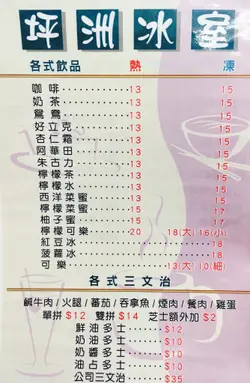 坪洲冰室
各式飲品 熱 凍
咖啡 13 15
奶茶 13 15
鴛鴦 13 15
好立克 13 15
杏仁霜 13 15
阿華田 13 15
朱古力 13 15
檸檬茶 13 15
檸檬水 13 15
西洋菜蜜 13 15
檸檬菜蜜 15
柚子蜜 15
檸檬可樂 20 18(大) 16(小)
紅豆冰 18
菠蘿冰 18
可樂 13(大) 10(細)
各式三文治
鹹牛肉/火腿/蕃茄/吞拿魚/煙肉/餐肉/雞蛋
單拼 $12 雙拼 $14 芝士額外加 $2
鮮油多士 $10
奶油多士 $10
奶醬多士 $10
油占多士 $10
公司三文治 $35